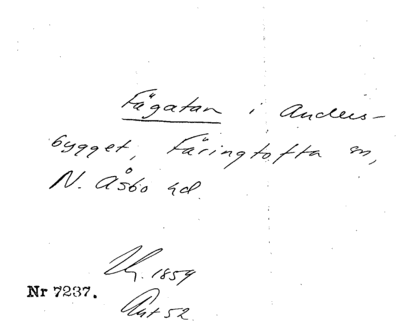 Fägatan i Anders-
bygget, Färingtofta sn,
N. Åsbo hd.
1859
Nr 7237.
Ant 52